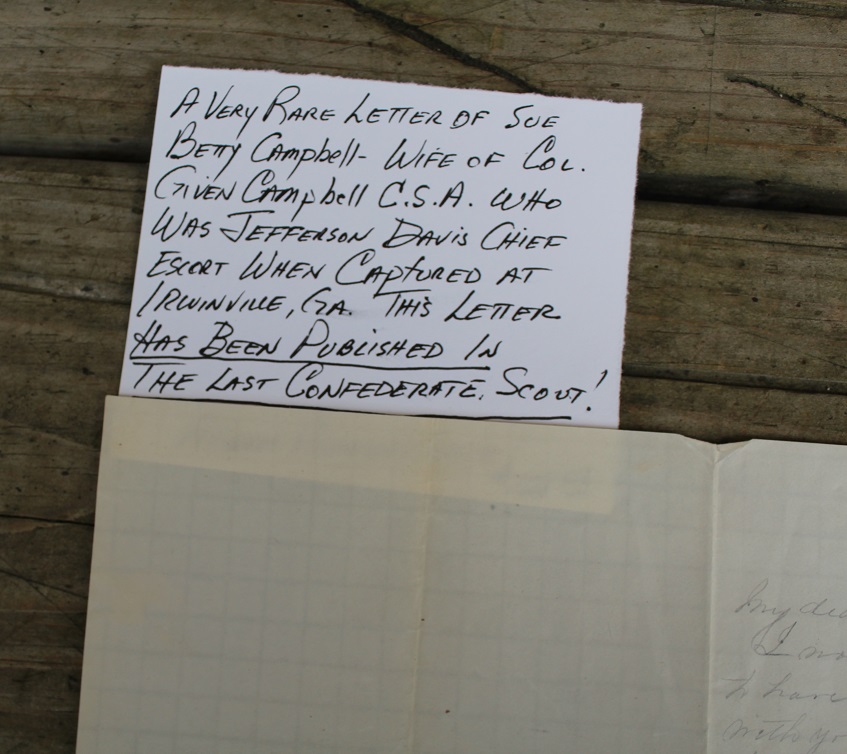 A VERY RARE LETTER OF SUE
BETTY CAMPBELL- WIFE OF COL.
GIVEN CAMPBELL C.S.A. WHO
WAS JEFFERSON DAVIS CHIEF
ESCORT WHEN CAPTURED AT
IRWINVILLE, GA. THIS LETTER
HAS BEEN PUBLISHED IN
THE LAST CONFEDERATE. SCOUT!
My
I
to have
with